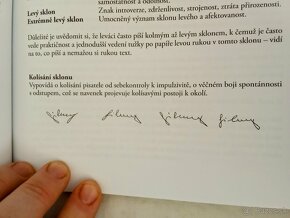 samostatnosť a odstup.
Levý sklon Znak introverze, zdrženlivost, strojenost, ztráta přirozenosti.
Extrémně levý sklon Umocněný význam sklonu levého a afektovanost.
Důležité je uvědomit si, že leváci často píší kolmým až levým sklonem, k čemuž je často
vede praktičnost a jednodušší vedení tužky po papíře levou rukou v tomto sklonu – vidí
na to, co píší a nemažou si rukou text.
Kolísání sklonu
Vypovídá o kolísání pisatele od sebekontroly k impulzivitě, o věčném boji spontánnosti
s odstupem, což se navenek projevuje kolísavými postoji k okolí.